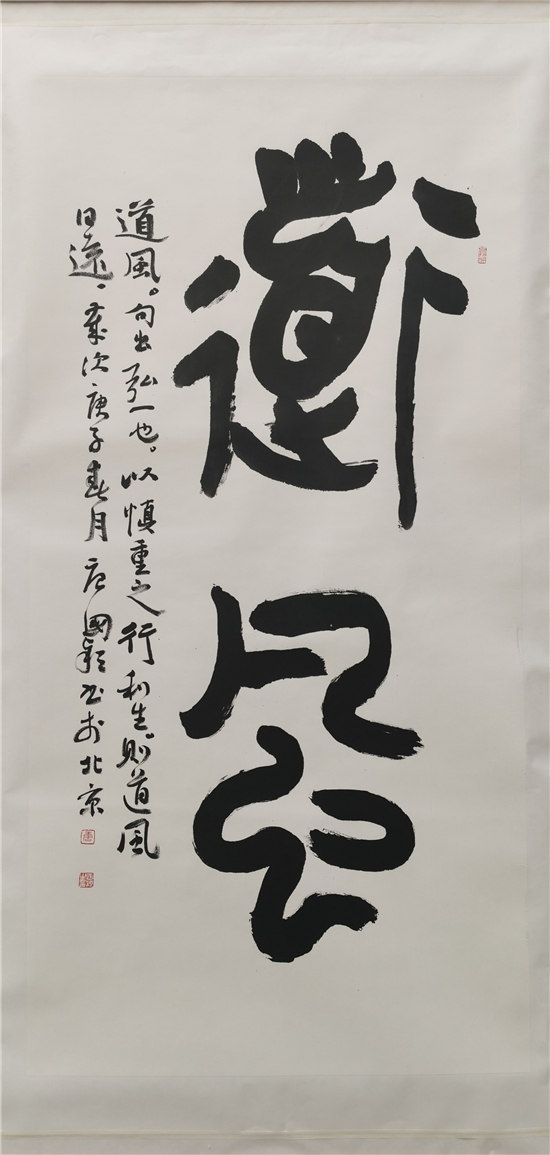 道風
道風。句出弘一也。以慎重之行利生。則道風
日遠。歲次庚子春月唐國韜書於北京